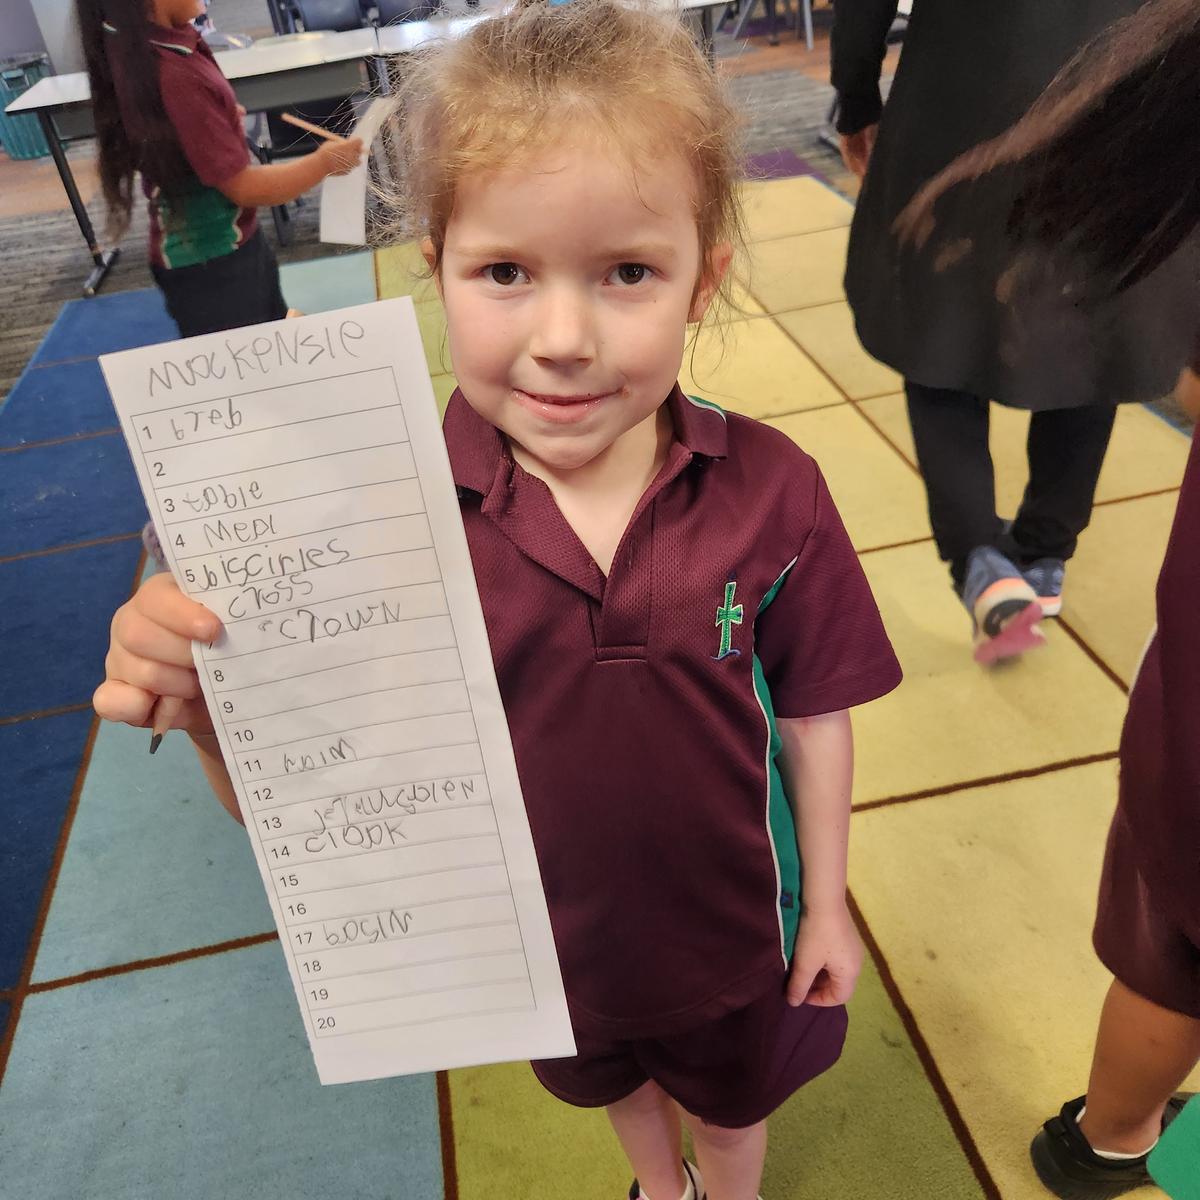 mackensie
1 bred
2
3 table
4 meal
5 disciples
cross
crown
8
9
10
11 palm
12
13
14 cloak
15
16
17 basin
18
19
20